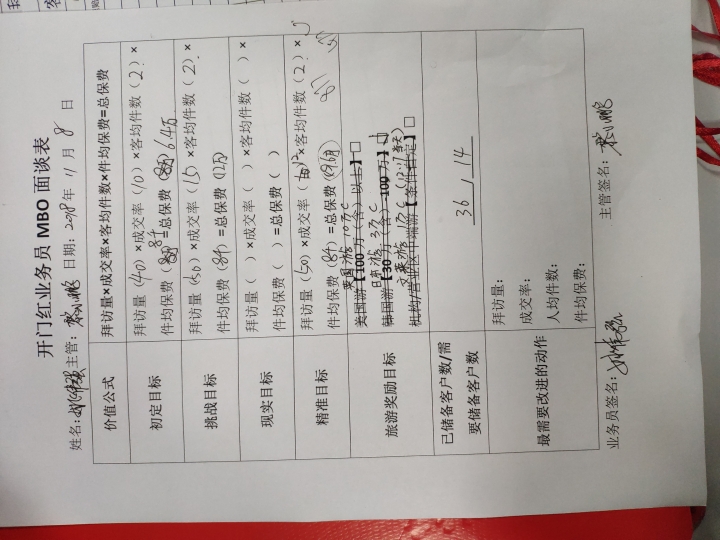 开门红业务员 MBO 面谈表
姓名: 主管: 日期: 2018年 11 月 8 日
价值公式 拜访量×成交率×客均件数×件均保费=总保费
初定目标 拜访量 (40) ×成交率 (10) ×客均件数 (2) ×
件均保费 (8千) =总保费 6.4万
挑战目标 拜访量 (50) ×成交率 (15) ×客均件数 (2) ×
件均保费 (8千) =总保费 (12万)
现实目标 拜访量 ( ) ×成交率 ( ) ×客均件数 ( ) ×
件均保费 ( ) =总保费 ( )
精准目标 拜访量 (50) ×成交率 ×客均件数 (2) ×
件均保费 (8千) =总保费 (9.6万)
英国游 10万C
旅游奖励目标 美国游【100 万(含)以上】□
日本游 3万C
韩国游【30 万(含)-100 万】□
文莱游 1万C
机构/营业区中端游【条件自定】□
已储备客户数/需 36 , 14
要储备客户数
最需要改进的动作 拜访量:
成交率:
人均件数:
件均保费:
业务员签名: 主管签名: